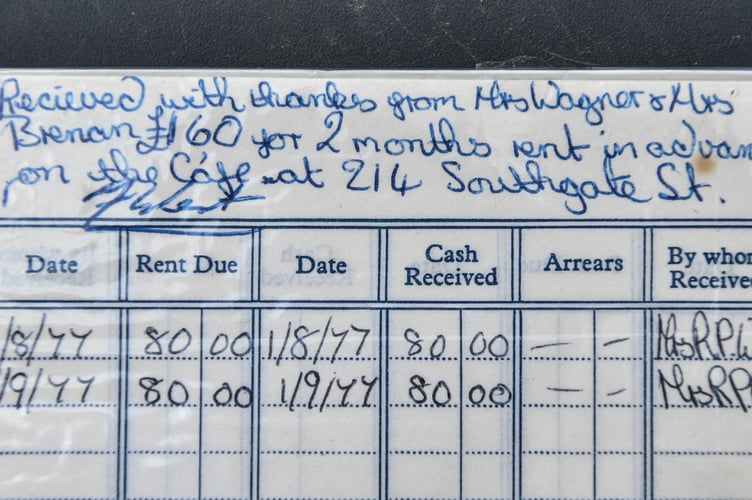 Recieved with thanks from Mrs Wagner & Mrs
Brenan £160 for 2 months rent in advan
on the Café at 214 Southgate St.
Date Rent Due Date Cash Received Arrears By whom Received
/8/77 80 00 1/8/77 80 00 — — Mrs R.P.
/9/77 80 00 1/9/77 80 00 — — Mrs R.P.